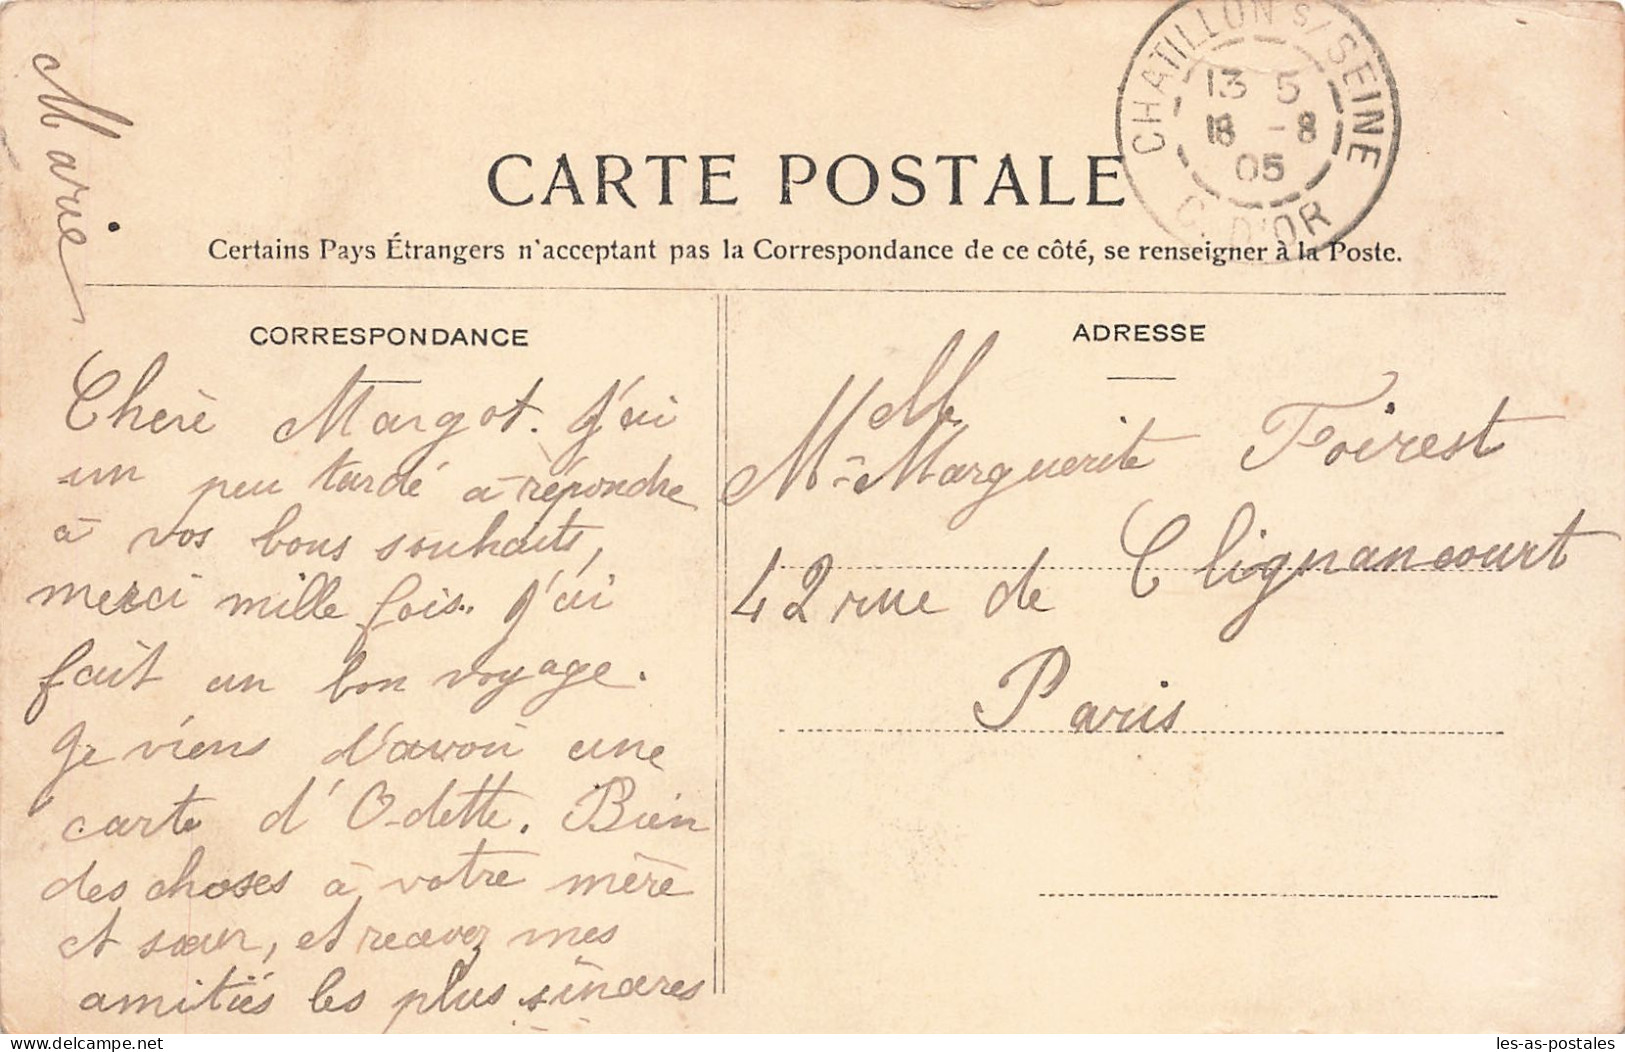 CARTE POSTALE
Certains Pays Étrangers n'acceptant pas la Correspondance de ce côté, se renseigner à la Poste.
CHATILLON S/SEINE
13 5
18 -8
05
C. D'OR
Marie
CORRESPONDANCE
Chère Margot. J'ai
un peu tardé a répondre
à vos bons souhaits,
merci mille fois.. J'ai
fait un bon voyage.
Je viens d'avoir une
carte d'Odette. Bien
des choses à votre mère
et sœur, et recevez mes
amitiés les plus sincères
ADRESSE
Melle
Marguerite Foirest
42 rue de Clignancourt
Paris
delcampe.net
les-as-postales